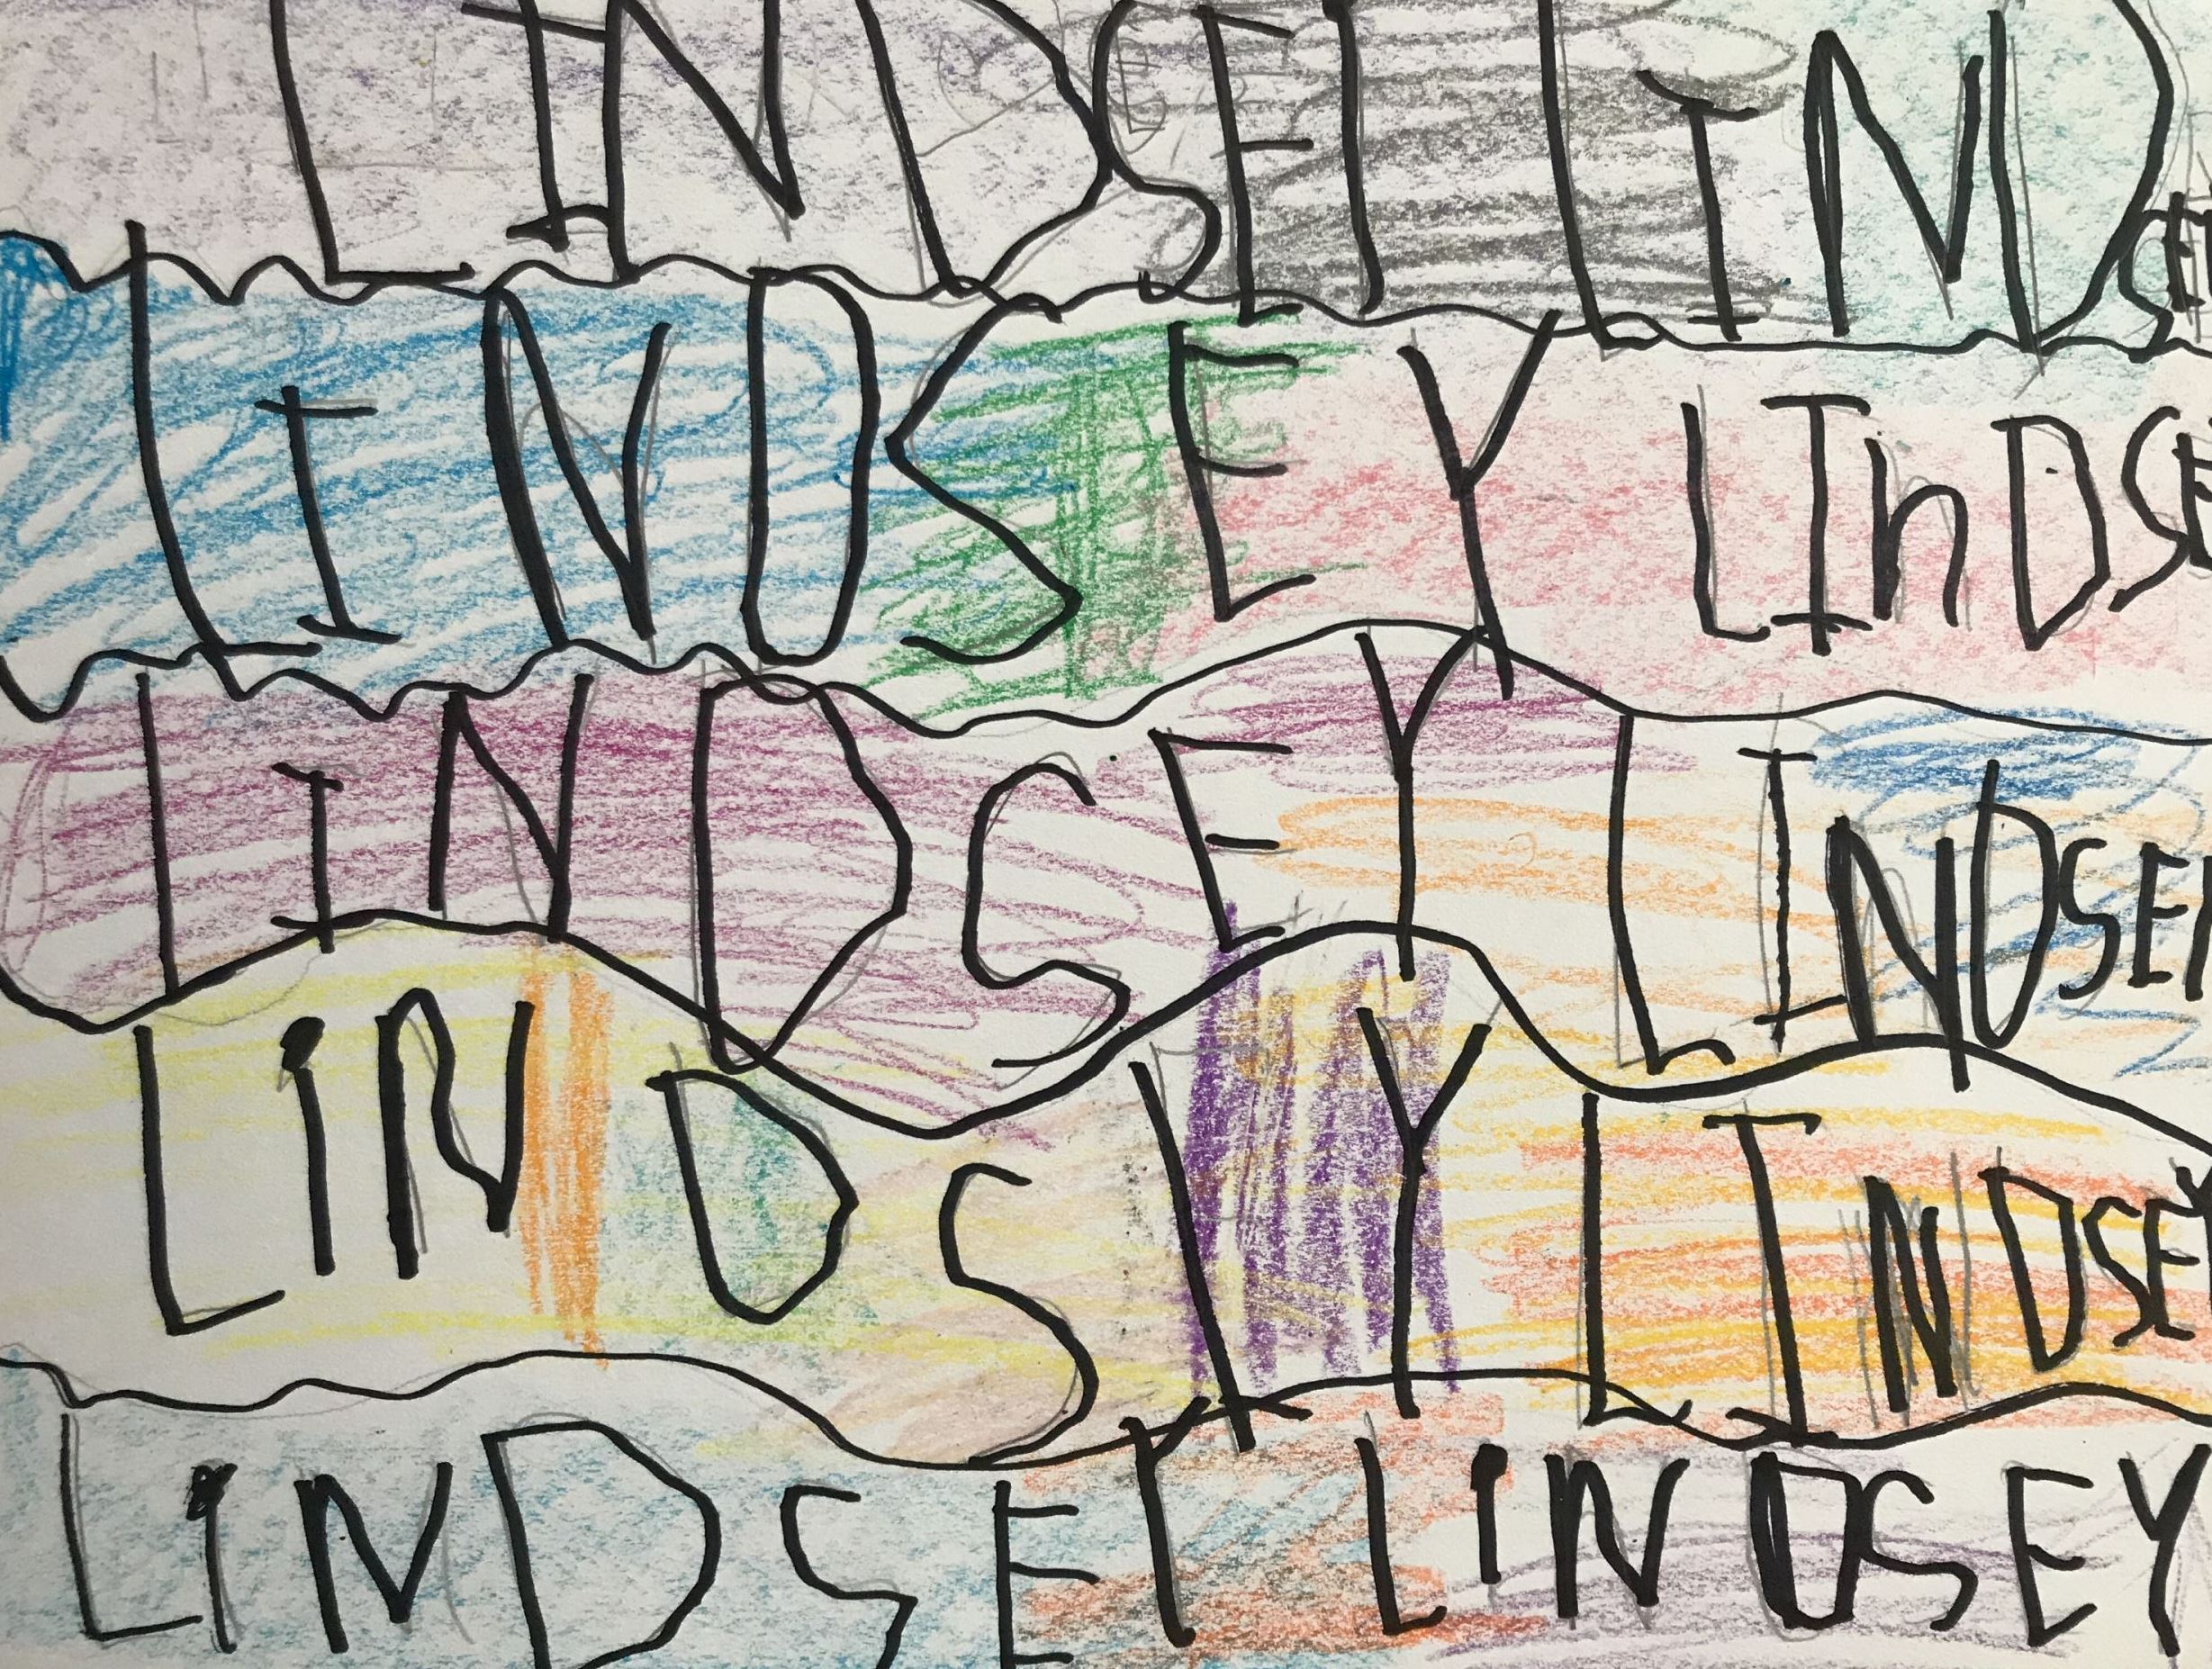 LINDSEY LINDSE
LINDSEY LINDSE
LINDSEY LINDSEY
LiNDSLY LINDSEY
LiNDSEY LiNDSEY